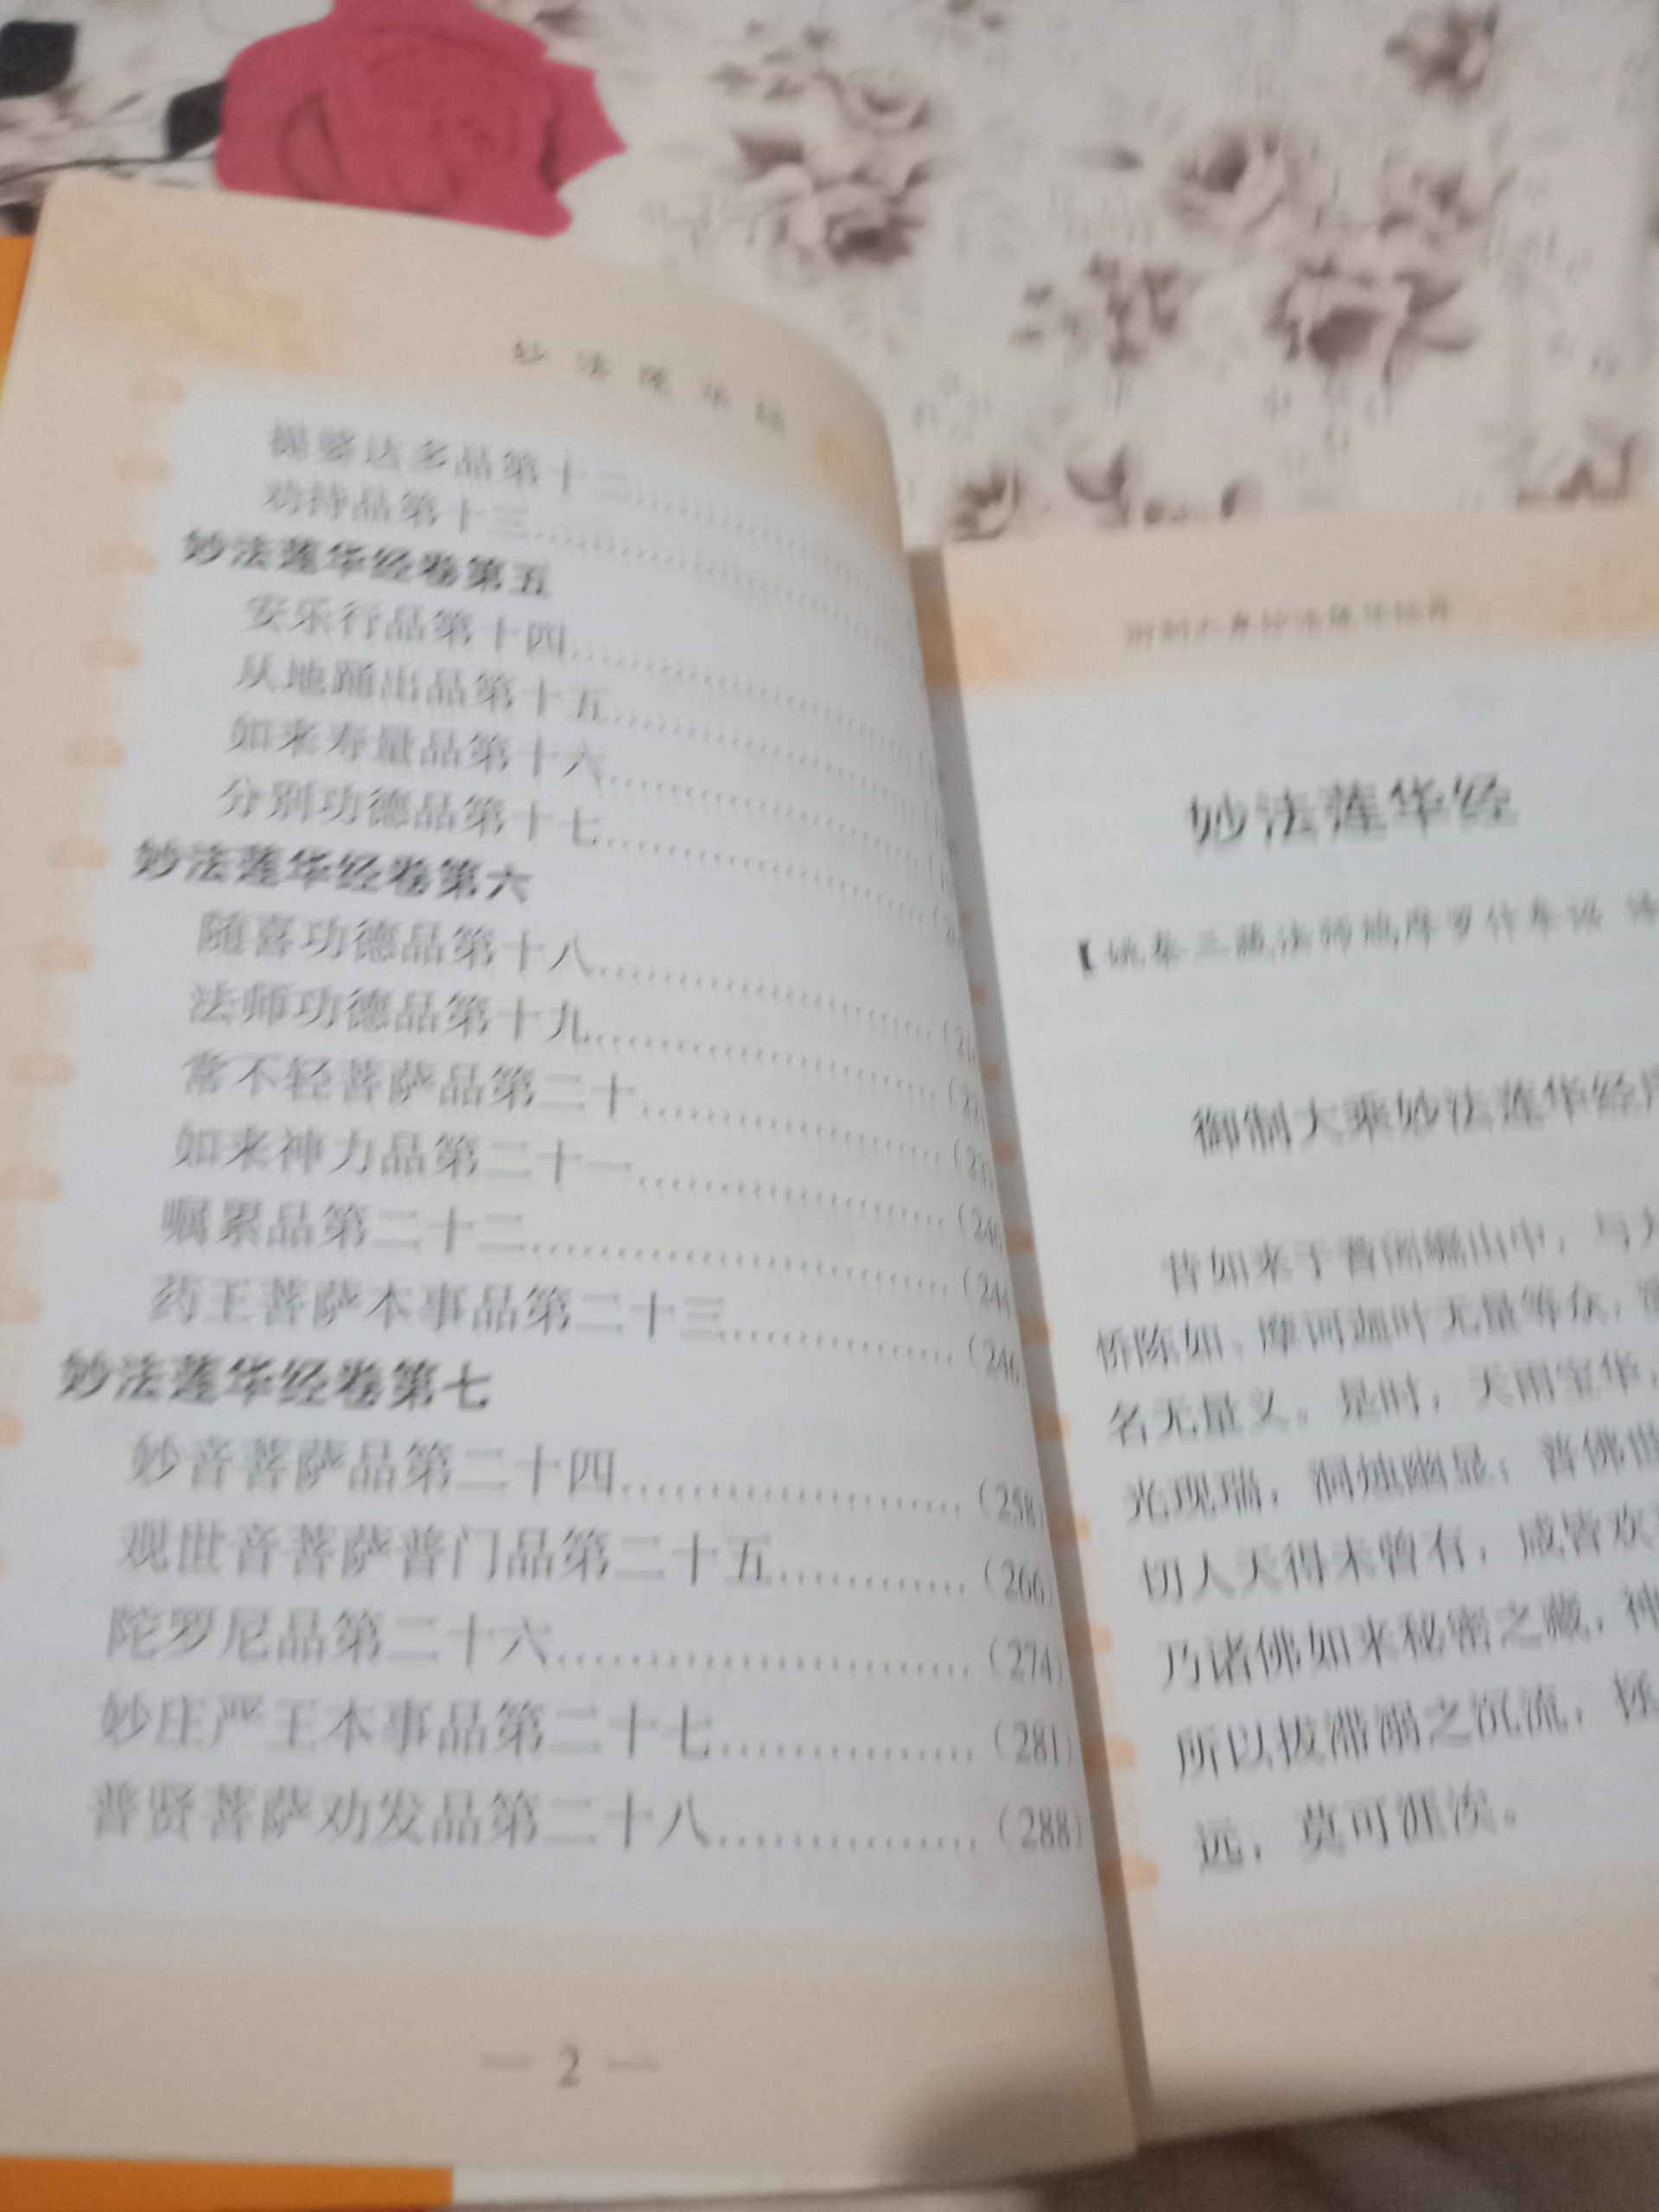 妙法莲华经
提婆达多品第十二
劝持品第十三
妙法莲华经卷第五
安乐行品第十四
从地踊出品第十五
如来寿量品第十六
分别功德品第十七
妙法莲华经卷第六
随喜功德品第十八
法师功德品第十九
常不轻菩萨品第二十
如来神力品第二十一
嘱累品第二十二……(244
药王菩萨本事品第二十三……(246
妙法莲华经卷第七
妙音菩萨品第二十四……(258)
观世音菩萨普门品第二十五……(266)
陀罗尼品第二十六……(274)
妙庄严王本事品第二十七……(281)
普贤菩萨劝发品第二十八……(288)
— 2 —
御制大乘妙法莲华经序
妙法莲华经
【姚秦三藏法师鸠摩罗什奉诏 译
御制大乘妙法莲华经序
昔如来于耆阇崛山中，与大
桥陈如、摩诃迦叶无量等众，演
名无量义。是时，天雨宝华，
光现瑞，洞烛幽显；普佛世
切人天得未曾有，咸皆欢
乃诸佛如来秘密之藏，神
所以拔滞溺之沉流，拯
远，莫可涯涘。